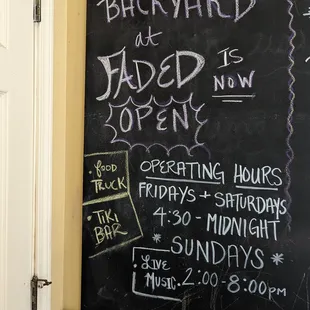 BACKYARD
at
FADED IS
NOW
OPEN
• FOOD
TRUCK
• TIKI
BAR
OPERATING HOURS
FRIDAYS + SATURDAYS
4:30 - MIDNIGHT
* SUNDAYS *
• LIVE
MUSIC
2:00 - 8:00pm